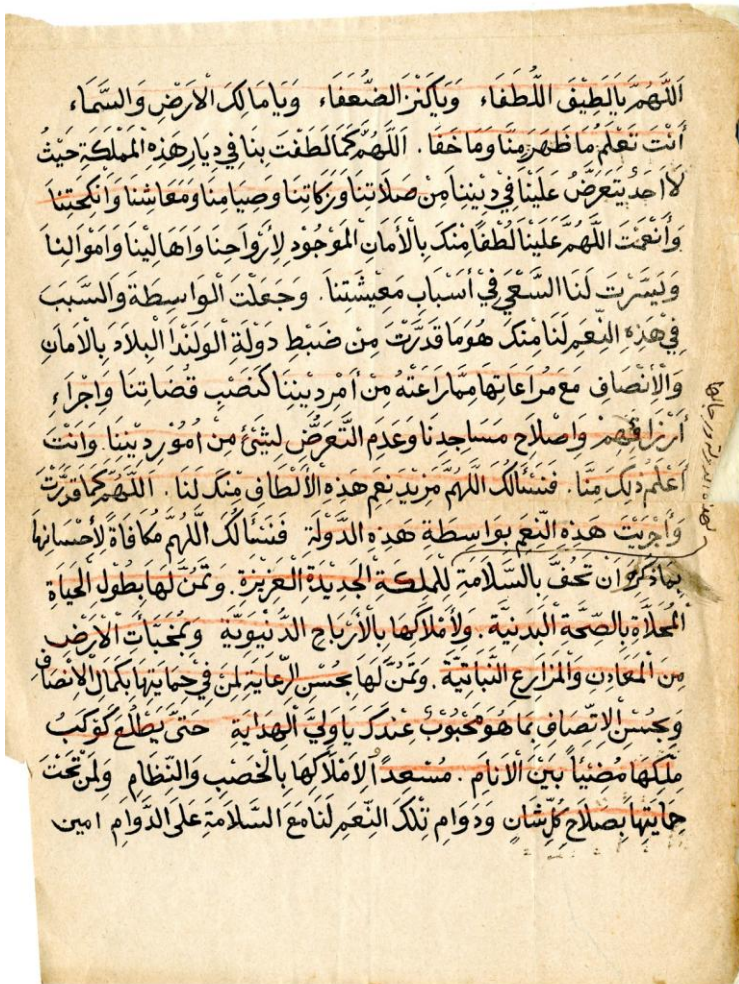 اَللّٰهُمَّ يَالَطِيْفَ اللُّطَفَاءِ وَيَاكَنْزَ الضُّعَفَاءِ وَيَامَالِكَ الْاَرْضِ وَالسَّمَاءِ
أَنْتَ تَعْلَمُ مَا ظَهَرَ مِنَّا وَمَا خَفَا . اَللّٰهُمَّ كَمَا لَطَفْتَ بِنَا فِي دِيَارِ هٰذِهِ الْمَمْلَكَةِ حَيْثُ
لَا اَحَدْ يَتَعَرَّضُ عَلَيْنَا فِيْ دِيْنِنَا مِنْ صَلَاتِنَا وَزَكَاتِنَا وَصِيَامِنَا وَمَعَاشِنَا وَانْكِحَتِنَا
وَأَنْعَمْتَ اللّٰهُمَّ عَلَيْنَا لُطْفًا مِنْكَ بِالْأَمَانِ الْمَوْجُوْدِ لِاَرْوَاحِنَا وَاَهَالِيْنَا وَاَمْوَالِنَا
وَيَسَّرْتَ لَنَا السَّعْيَ فِيْ أَسْبَابِ مَعِيْشَتِنَا . وَجَعَلْتَ الْوَاسِطَةَ وَالسَّبَبَ
فِيْ هٰذِهِ النِّعَمِ لَنَا مِنْكَ هُوَ مَا قَدَّرْتَ مِنْ ضَبْطِ دَوْلَةِ الْوَلَنْدَا الْبِلَادَ بِالْاَمَانِ
وَالْأَنْصَافِ مَعَ مُرَاعَاتِهَا مِمَّا رَاعَتْهُ مِنْ أَمْرِ دِيْنِنَا كَنَصْبِ قُضَاتِنَا وَاِجْرَاءِ
أَرْزَاقِهِمْ وَاِصْلَاحِ مَسَاجِدِنَا وَعَدَمِ التَّعَرُّضِ لِشَيْئٍ مِنْ اُمُوْرِ دِيْنِنَا وَاَنْتَ
أَعْلَمُ ذٰلِكَ مِنَّا . فَنَسْئَالُكَ اللّٰهُمَّ مَزِيْدَ نِعَمِ هٰذِهِ الْأَلْطَافِ مِنْكَ لَنَا . اَللّٰهُمَّ كَمَا قَدَّرْتَ
وَأَجْرَيْتَ هٰذِهِ النِّعَمِ بِوَاسِطَةِ هٰذِهِ الدَّوْلَةِ فَنَسْئَالُكَ اللّٰهُمَّ مُكَافَاةً لِأَحْسَانِهَا
لهذه الدولة ورجالها
بِمَا ذُكِرَ اَنْ تَحُفَّ بِالسَّلَامَةِ لِلْمَلِكَةِ الْجَدِيْدَةِ الْعَزِيْزَةِ . وَتَمُنَّ لَهَا بِطُوْلِ الْحَيَاةِ
الْمُحَلَّاةِ بِالصِّحَّةِ الْبَدَنِيَّةِ . وَلِاَمْلَاكِهَا بِالْأَرْبَاحِ الدُّنْيَوِيَّةِ وَبِمُخَبَّاتِ الْاَرْضِ
مِنَ الْمَعَادِنِ وَالْمَزَارِعِ النَّبَاتِيَّةِ . وَتَمُنَّ لَهَا بِحُسْنِ الرِّعَايَةِ لِمَنْ فِيْ حِمَايَتِهَا بِكَمَالِ الْاِنْصَافِ
وَبِحُسْنِ الْاِتِّصَافِ بِمَا هُوَ مَحْبُوْبٌ عِنْدَكَ يَا وَلِيَّ الْهِدَايَةِ حَتّٰى يَطْلُعَ كَوْكَبُ
مُلْكِهَا مُضِيْئًا بَيْنَ الْاَنَامِ . مُسْعِدًا لِاَمْلَاكِهَا بِالْخَصْبِ وَالنِّظَامِ وَلِمَنْ تَحْتَ
حِمَايَتِهَا بِصَلَاحِ كُلِّ شَانٍ وَدَوَامِ تِلْكَ النِّعَمِ لَنَا مَعَ السَّلَامَةِ عَلَى الدَّوَامِ اٰمين